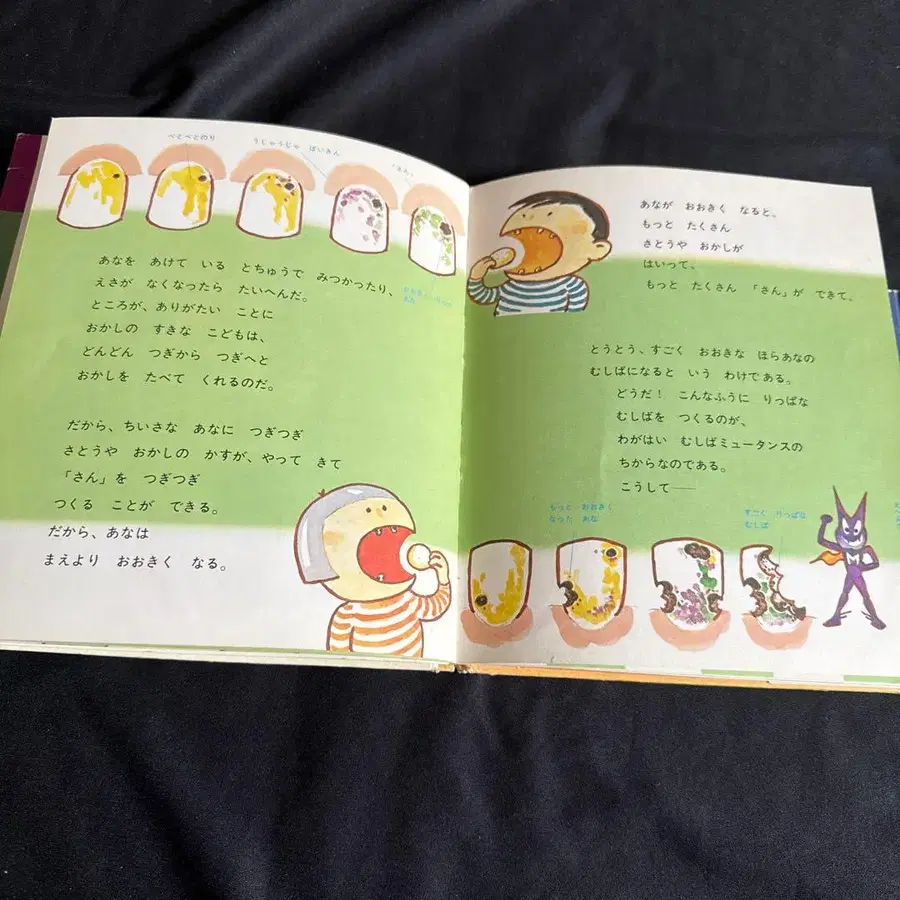 べとべとのり
うじゃうじゃ ばいきん
「さん」
あなを あけて いる とちゅうで みつかったり、
えさが なくなったら たいへんだ。
ところが、ありがたい ことに
おかしの すきな こどもは、
どんどん つぎから つぎへと
おかしを たべて くれるのだ。
だから、ちいさな あなに つぎつぎ
さとうや おかしの かすが、やって きて
「さん」を つぎつぎ
つくる ことが できる。
だから、あなは
まえより おおきく なる。
あなが おおきく なると、
もっと たくさん
さとうや おかしが
はいって、
もっと たくさん 「さん」が できて、
とうとう、すごく おおきな ほらあなの
むしばになると いう わけである。
どうだ! こんなふうに りっぱな
むしばを つくるのが、
わがはい むしばミュータンスの
ちからなのである。
こうして──
もっと おおきく
なった あな
すごく りっぱな
むしば